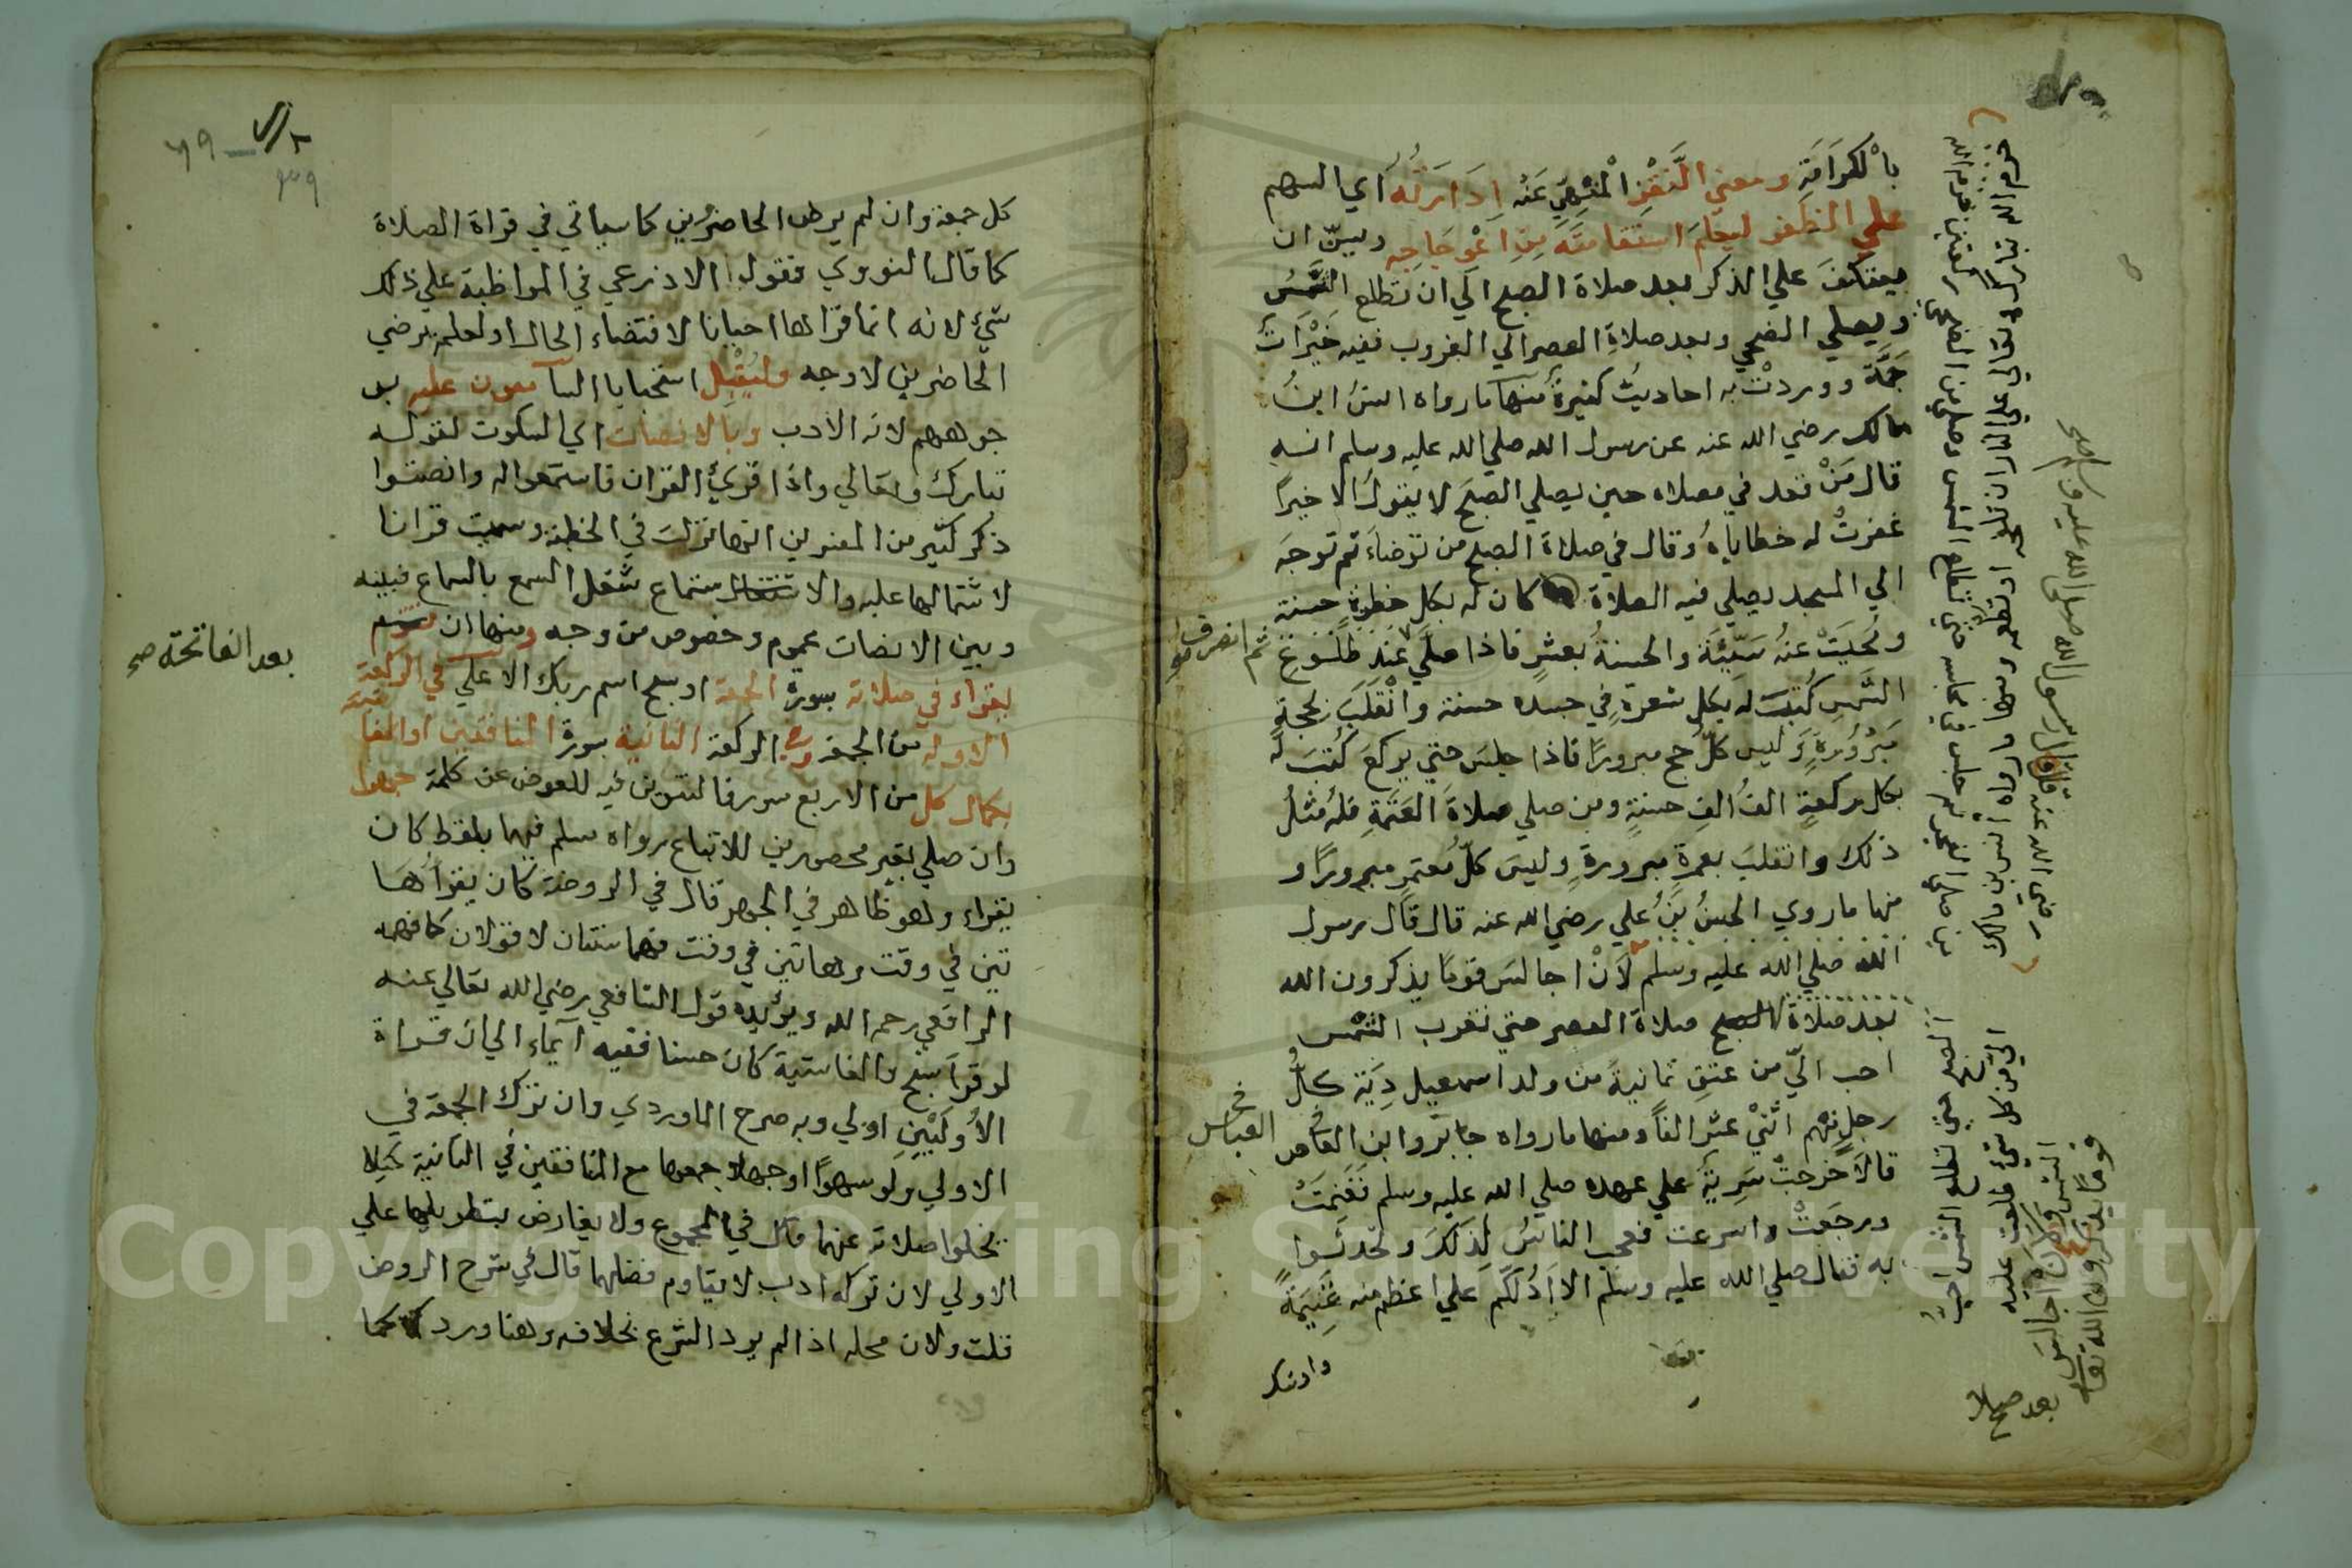 بالكرامة ومعني النقز المنهي عنه ادارته اي السهم
علي الظفر ليعلم استقامته من اعوجاجه ويسن ان
يعتكف علي الذكر بعد صلاة الصبح الي ان تطلع الشمس
ويصلي الضحي وبعد صلاة العصر الي الغروب ففيه خيرات
جمة ووردت به احاديث كثيرة منها ما رواه انس ابن
مالك رضي الله عنه عن رسول الله صلي الله عليه وسلم انه
قال من قعد في مصلاه حين يصلي الصبح لا يقول الا خيرا
غفرت له خطاياه وقال في صلاة الصبح من توضاء ثم توجه
الي المسجد يصلي فيه الصلاة كان له بكل خطوة حسنة
ومحيت عنه سيئة والحسنة بعشر فاذا صلي عند طلوع
ثم انصرف
الشمس كتبت له بكل شعرة في جسده حسنة وانقلب بحجة
مبرورة وليس كل حج مبرورا فاذا جلس حتي يركع كتبت له
بكل ركعة الف الف حسنة ومن صلي صلاة العتمة فله مثل
ذلك وانقلب بعمرة مبرورة وليس كل معتمر مبرورا و
منها ما روي الحسن بن علي رضي الله عنه قال قال رسول
الله صلي الله عليه وسلم لان اجالس قوما يذكرون الله
بعد صلاة الصبح صلاة العصر حتي تغرب الشمس
احب الي من عتق ثمانية من ولد اسمعيل دية كل
رجل منهم اثني عشر الفا ومنها ما رواه جابر وابن القاص
العباس
قالا خرجت سرية علي عهده صلي الله عليه وسلم فغنمت
ورجعت واسرعت فعجب الناس لذلك وتحدثوا
به فقال صلي الله عليه وسلم الا ادلكم علي اعظم منه غنيمة
الصبح حتي تطلع الشمس احب
الي من كل شي طلعت عليه
الشمس ولان اجالس
قوما يذكرون الله تعا
بعد صلاة
كل جمعة وان لم يرض الحاضرين كما سياتي في قراة الصلاة
كما قال النووي فقول الاذرعي في المواظبة علي ذلك
شيء لانه انما قراها احيانا لاقتضاء الحال او لعلمه برضي
الحاضرين لا وجه وليقبل استحبابا السامعون عليه بو
جوههم لانه الادب وبالانصات اي السكوت لقوله
تبارك وتعالي واذا قريء القران فاستمعوا له وانصتوا
ذكر كثير من المفسرين انها نزلت في الخطبة وسميت قرانا
لاشتمالها عليه والاستماع شغل السمع بالسماع فبينه
وبين الانصات عموم وخصوص من وجه ومنها ان
بعد الفاتحة صح
يقراء في صلاته سورة الجمعة او سبح اسم ربك الاعلي في الركعة
الاولة من الجمعة وفي الركعة الثانية سورة المنافقين او الغا
شية
بكمال كل من الاربع سور فالتنوين فيه للعوض عن كلمة جهرا
وان صلي بغير محصورين للاتباع رواه مسلم فيهما بلفظ كان
يقراء وهو ظاهر في الجهر قال في الروضة كان يقرأ هـا
تين في وقت وهاتين في وقت فهما سنتان لا قولان كما فهمه
الرافعي رحمه الله ويؤيده قول الشافعي رضي الله تعالي عنه
لو قرا سبح والغاشية كان حسنا ففيه ايماء الي ان قراة
الأوليين اولي وبه صرح الماوردي وان ترك الجمعة في
الاولي ولو سهوا او جهلا جمعها مع المنافقين في الثانية كيلا
تخلوا صلاته عنهما قال في المجموع ولا يعارض بتطويلها علي
الاولي لان تركه ادب لا يقاوم فضلهما قال في شرح الروض
قلت ولان محله اذا لم يرد الشرع بخلافه وهنا ورد كما
Copyright © King Saud University